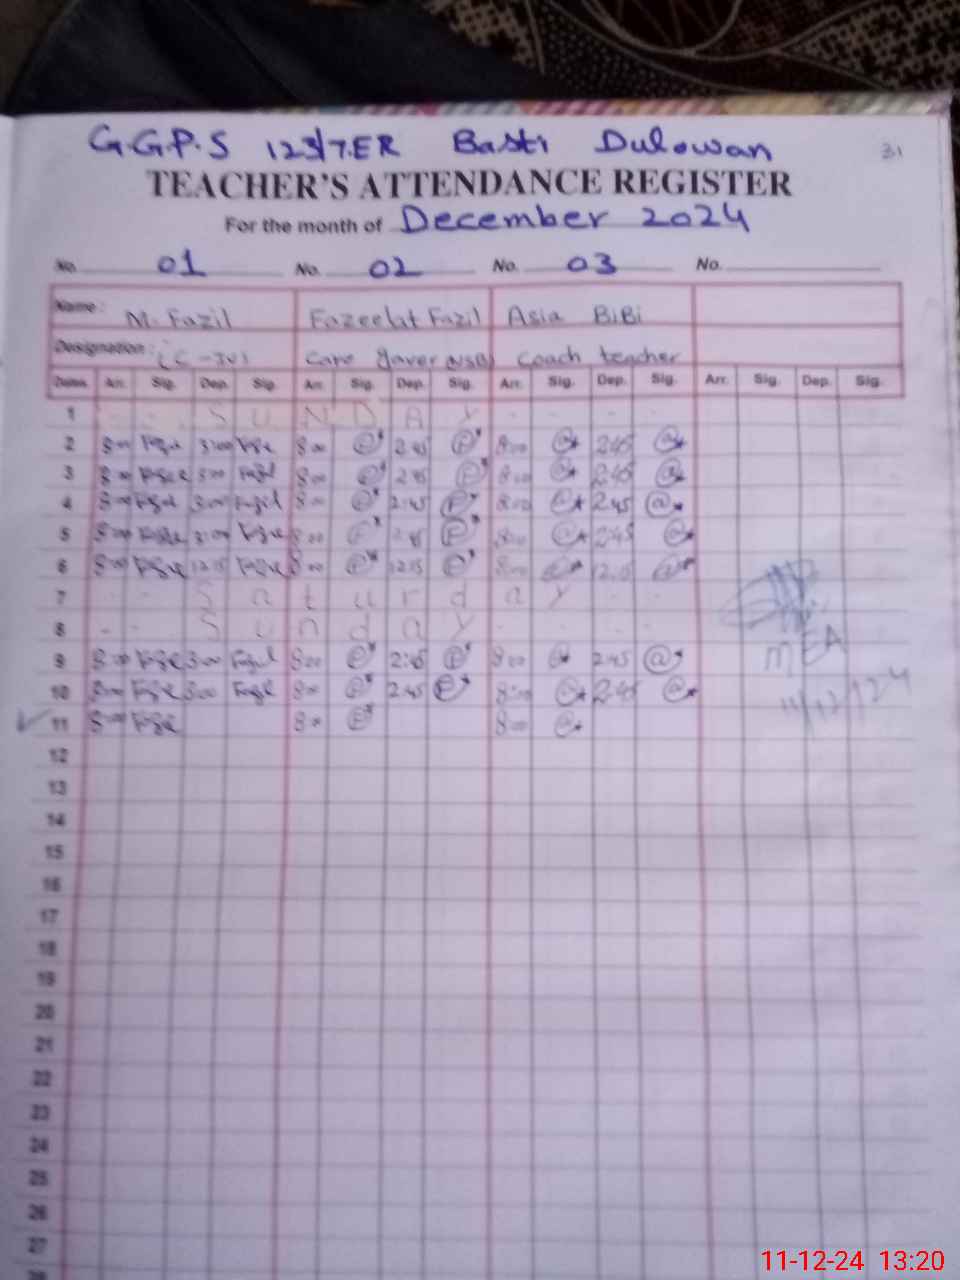 G.G.P.S 123/7.ER Basti Dulowan
31
TEACHER'S ATTENDANCE REGISTER
For the month of December 2024
No. 01 No. 02 No. 03 No.
Name: M. Fazil Fazeelat Fazil Asia BiBi
Designation: Care Gaver (NSB) Coach teacher
Dates Arr. Sig. Dep. Sig. Arr. Sig. Dep. Sig. Arr. Sig. Dep. Sig. Arr. Sig. Dep. Sig.
1 S U N D A Y
2 8:00 3:00 8:00 2:45 8:00 2:45
3 8:00 3:00 8:00 2:45 8:00 2:45
4 8:00 3:00 8:00 2:45 8:00 2:45
5 8:00 3:00 8:00 2:45 8:00 2:45
6 8:00 12:15 8:00 12:15 8:00 12:15
7 S a t u r d a y
8 S u n d a y
9 8:00 3:00 Fazil 8:00 2:45 8:00 2:45
MEA
10 8:00 3:00 8:00 2:45 8:00 2:45
11/12/24
11 8:00 8:00 8:00
12
13
14
15
16
17
18
19
20
21
22
23
24
25
26
27
28
11-12-24 13:20